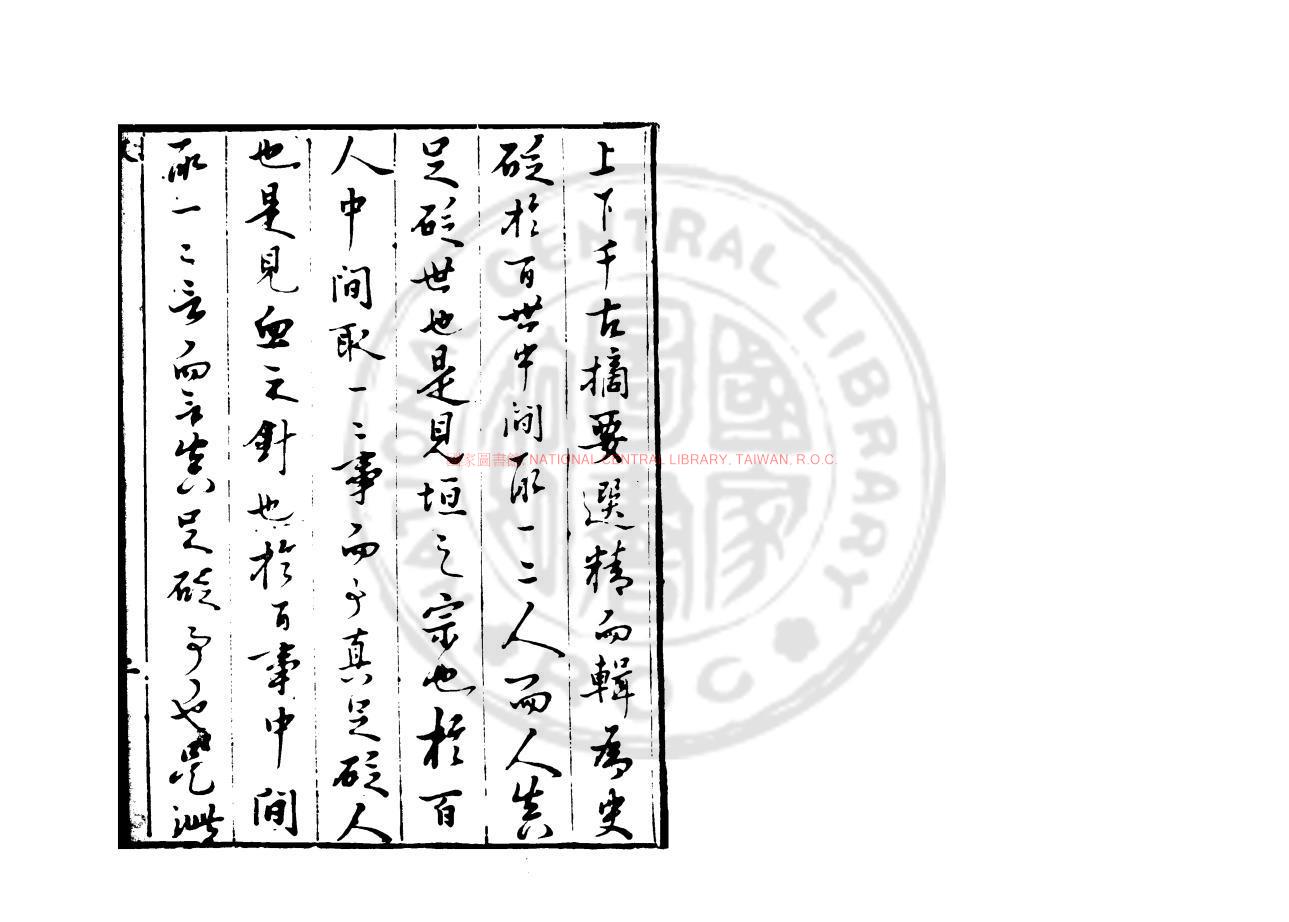 上下千古摘要選精而輯為史
砭於百世中間取一二人而人真
足砭世也是見垣之宗也於百
人中間取一二事而事真足砭人
也是見血之針也於百事中間
取一二言而言真足砭事也是
國家圖書館, NATIONAL CENTRAL LIBRARY, TAIWAN, R.O.C.
NATIONAL CENTRAL LIBRARY
R.O.C
國家圖書館